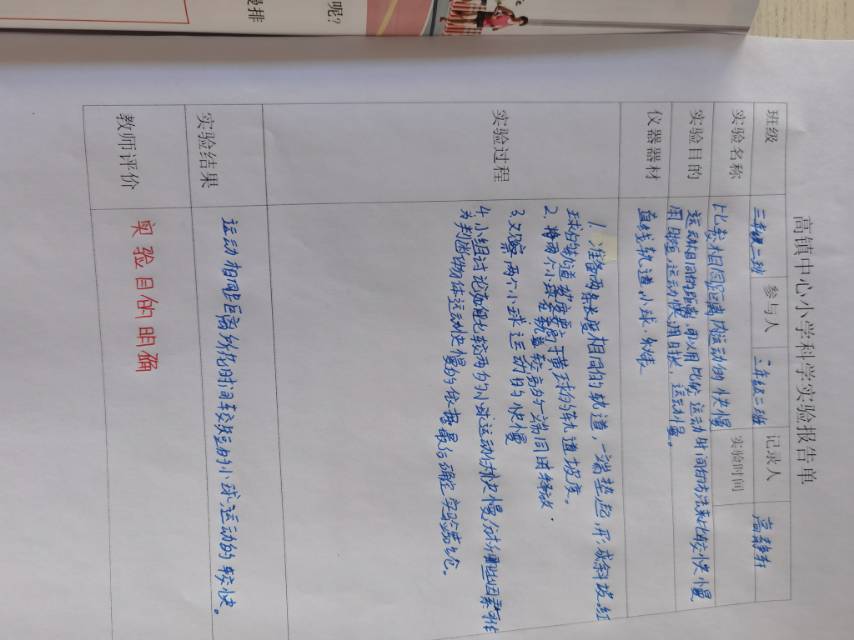 呢?
慢排
高镇中心小学科学实验报告单
班级 三年级二班 参与人 三年级二班 记录人 高静轩
实验名称 比较相同距离内运动的快慢 实验时间
实验目的 运动相同的距离,可以用比较运动时间的方法来比较快慢
用时短,运动快,用时长,运动慢。
仪器器材 直线轨道 小球
实验过程 1. 准备两条长度相同的轨道,一端垫起形成斜坡,红
球的轨道坡度要 于黄球的轨道坡度。
2. 将两个小球 在轨道较高的一端同时释放.
3. 观察两个小球运动的快慢
4. 小组讨论如何比较两个小球运动快慢,分析哪些因素可作
为判断物体运动快慢的依据最后确定实验结论。
实验结果 运动相同距离所花时间较短的小球运动的较快。
教师评价 实验目的明确